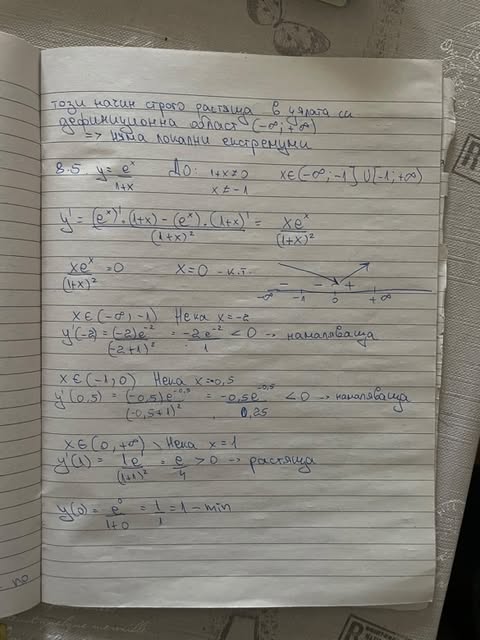 този начин строго растяща в цялата си
дефиниционна област (-∞; +∞)
=> няма локални екстремуми
8.5 y = e^x/(1+x) ДО: 1+x≠0 x∈(-∞;-1]∪[-1;+∞)
x≠-1
y' = ((e^x)'·(1+x) - (e^x)·(1+x)')/(1+x)² = xe^x/(1+x)²
xe^x/(1+x)² = 0 x=0 - к.т.
- - +
-∞ -1 0 +∞
x∈(-∞;-1) Нека x=-2
y'(-2) = (-2)e^-2/(-2+1)² = -2e^-2/1 < 0 → намаляваща
x∈(-1;0) Нека x=-0,5
y'(0,5) = (-0,5)e^-0,5/(-0,5+1)² = -0,5e^-0,5/0,25 < 0 → намаляваща
x∈(0,+∞) Нека x=1
y'(1) = 1e/(1+1)² = e/4 > 0 → растяща
y(0) = e^0/(1+0) = 1/1 = 1 - min